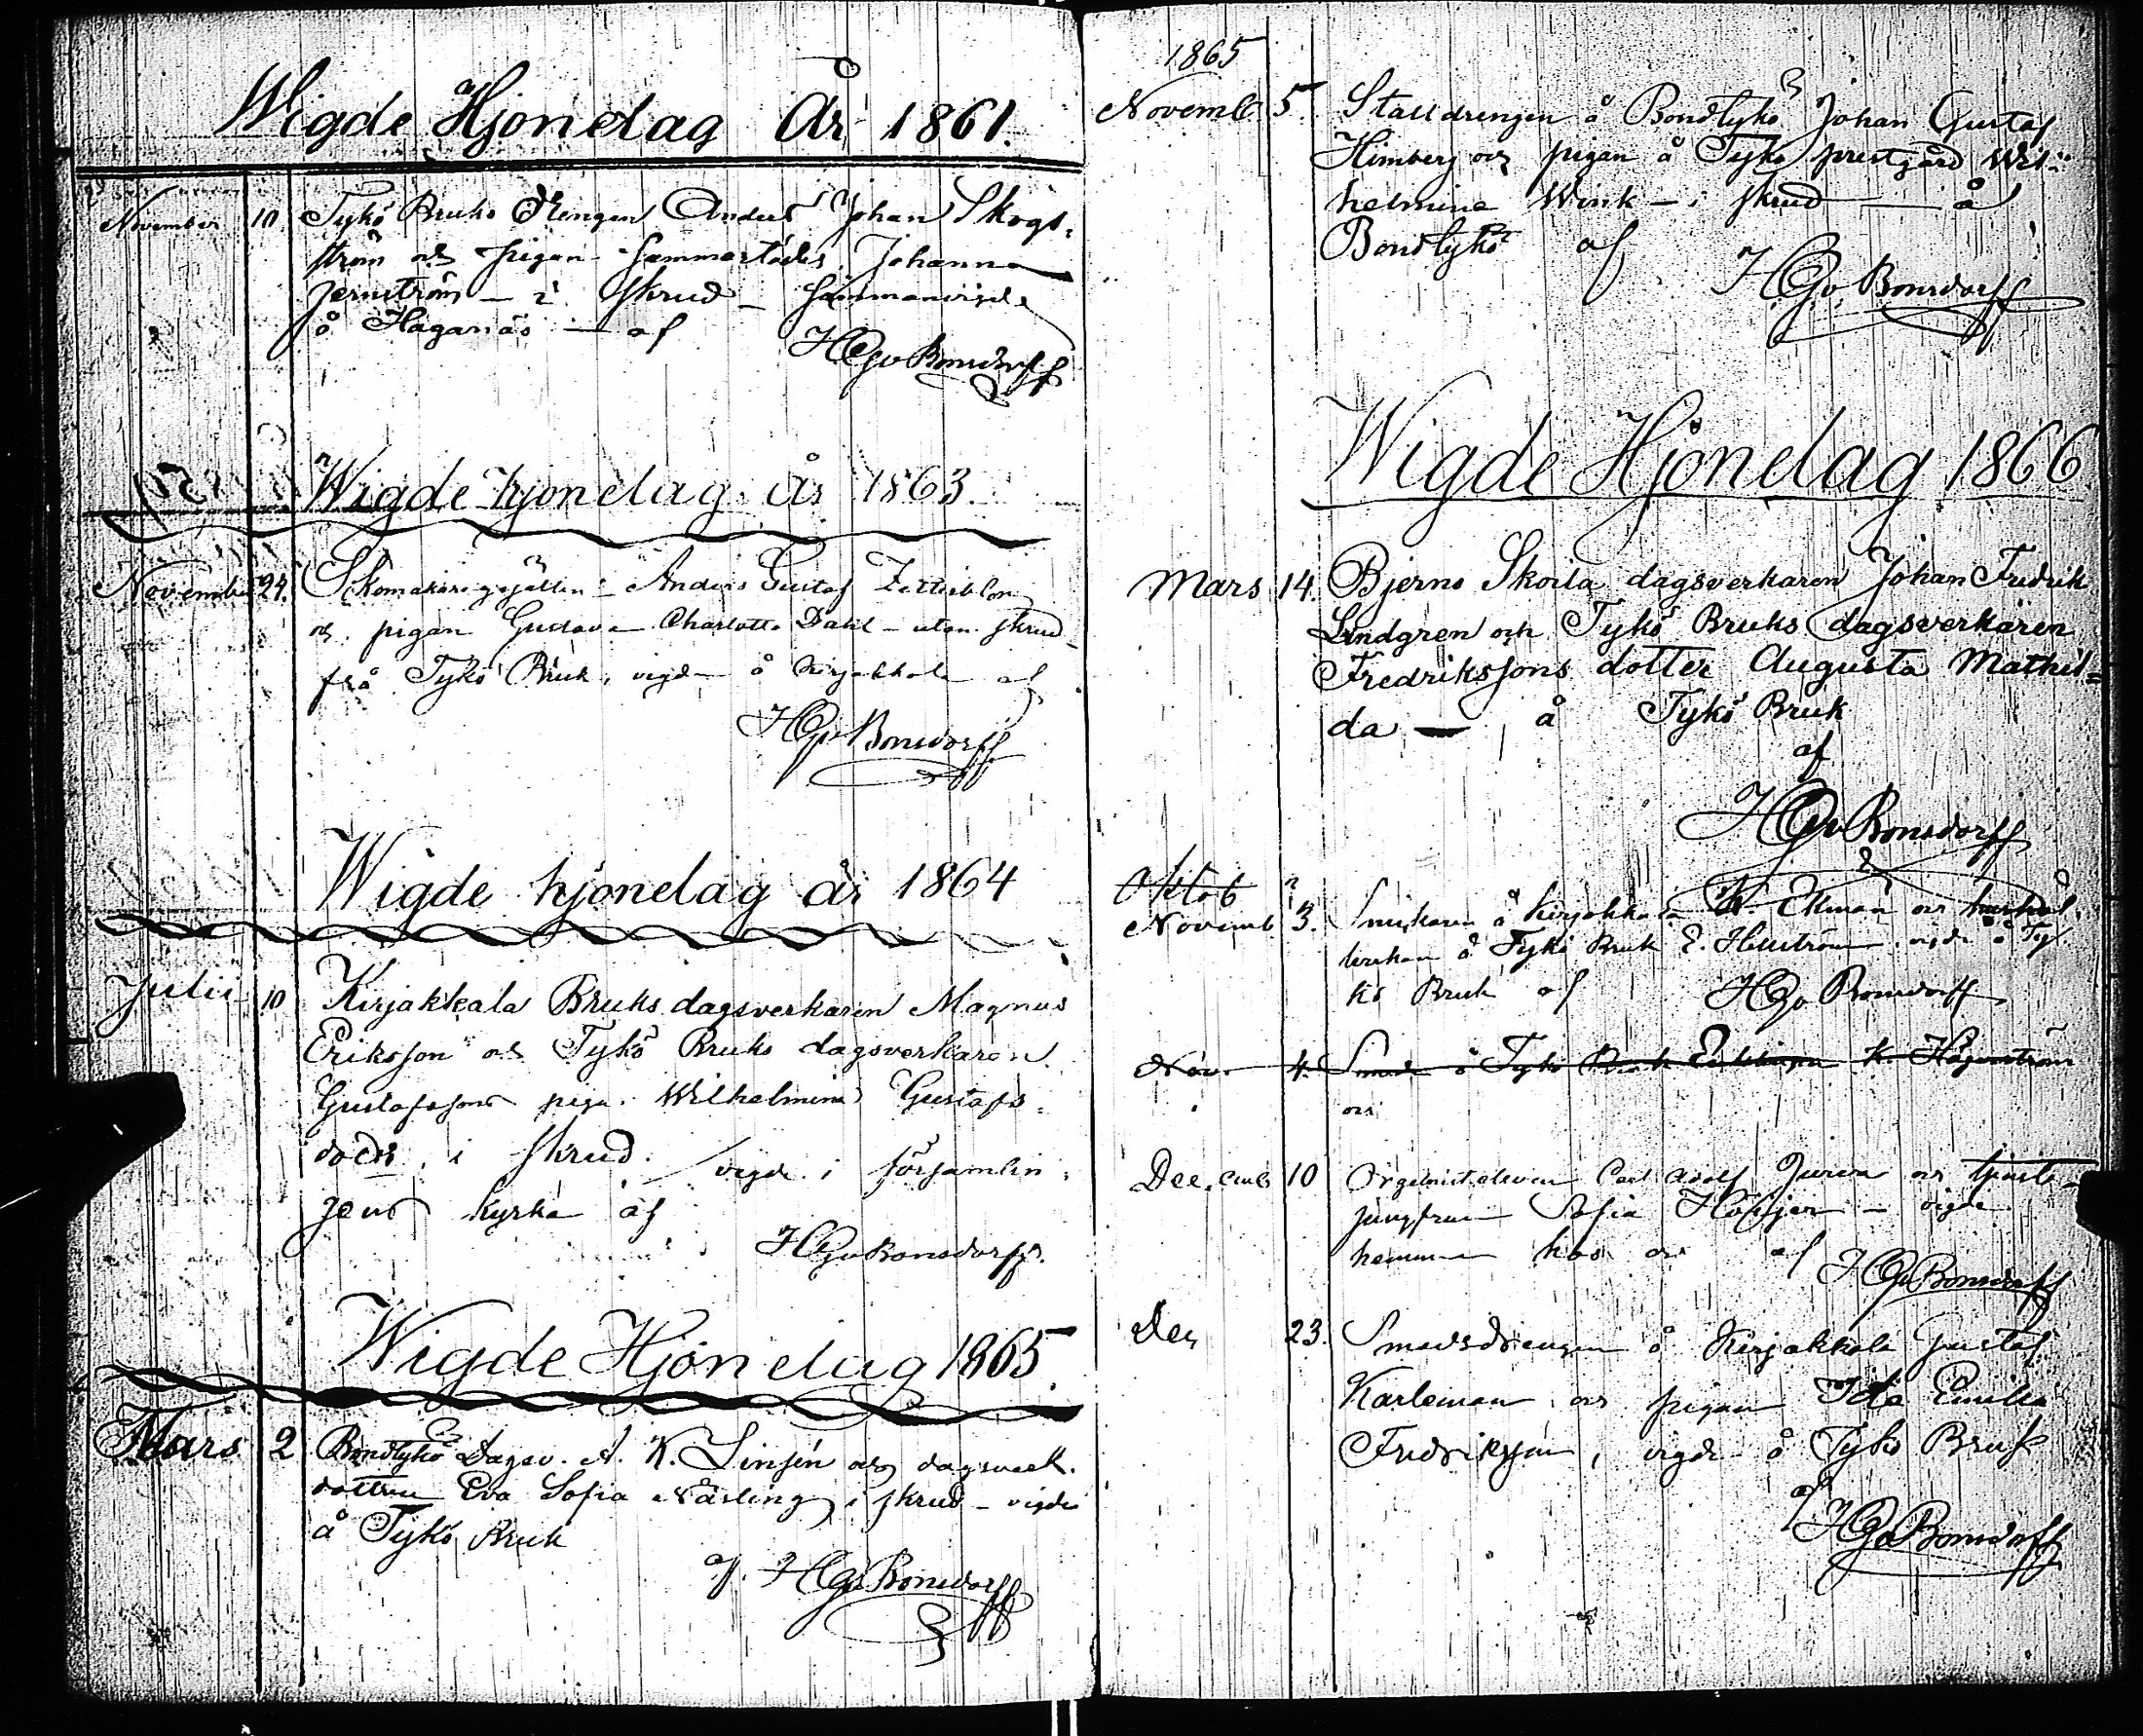 Wigde Hjonelag År 1861.
November 10. Tykö Bruks Drengen Anders Johan Skogs-
ström och pigan Sammastädes Johanna
Jernström – i skrud – Sammanvigde
å Haganäs – af
HGvBonsdorff
Wigde hjonelag år 1863.
November 24. Skomakaregesällen Anders Gustaf Zetterblom
och pigan Gustava Charlotta Dahl – utan skrud
frå Tykö Bruk, vigde å Kirjakkala af
HGvBonsdorff
Wigde hjonelag år 1864
Julii 10 Kirjakkala Bruks dagsverkaren Magnus
Eriksson och Tykö Bruks dagsverkaren
Gustafssons piga Wilhelmina Gustafs-
doctr i skrud. vigde i församlin-
gens kyrka af
HGvBonsdorff.
Wigde Hjonelag 1865
Mars 2 Bondtykö Dagsv. A. K. Linsén och dagsverk.
dottren Eva Sofia Närling i skrud – vigde
å Tykö Bruk
af. HGvBonsdorff
1865
Novemb 5. Stalldrengen å Bondtykö Johan Gustaf
Himberg och pigan å Tykö prestgård Wil-
helmina Wink – i skrud – å
Bondtykö af
HGv Bonsdorff
Wigde Hjonelag 1866.
Mars 14. Bjerno Skoila dagsverkaren Johan Fredrik
Lindgren och Tykö Bruks dagsverkaren
Fredrikssons dotter Augusta Mathil=
da — å Tykö Bruk
af
HGvBonsdorff
Oktob
Novemb. 3. Snickaren å Kirjakkala K. Ekman och
å Tykö Bruk E. Hellström vigde å Ty-
kö Bruk af HGv Bonsdorff
Nov. 4. Smeden å Tykö Bruk K. Hägerström
och
Decemb 10 Orgelnisteleven Carl Adolf och tjenste-
jungfrun Sofia – vigde
hemma hos af HGvBonsdorff
Dec 23. Smedsdrengen å Kirjakkala Gustaf
Karleman och pigan Ida Emilia
Fredriksson, vigde å Tykö Bruk
af
HGvBonsdorff